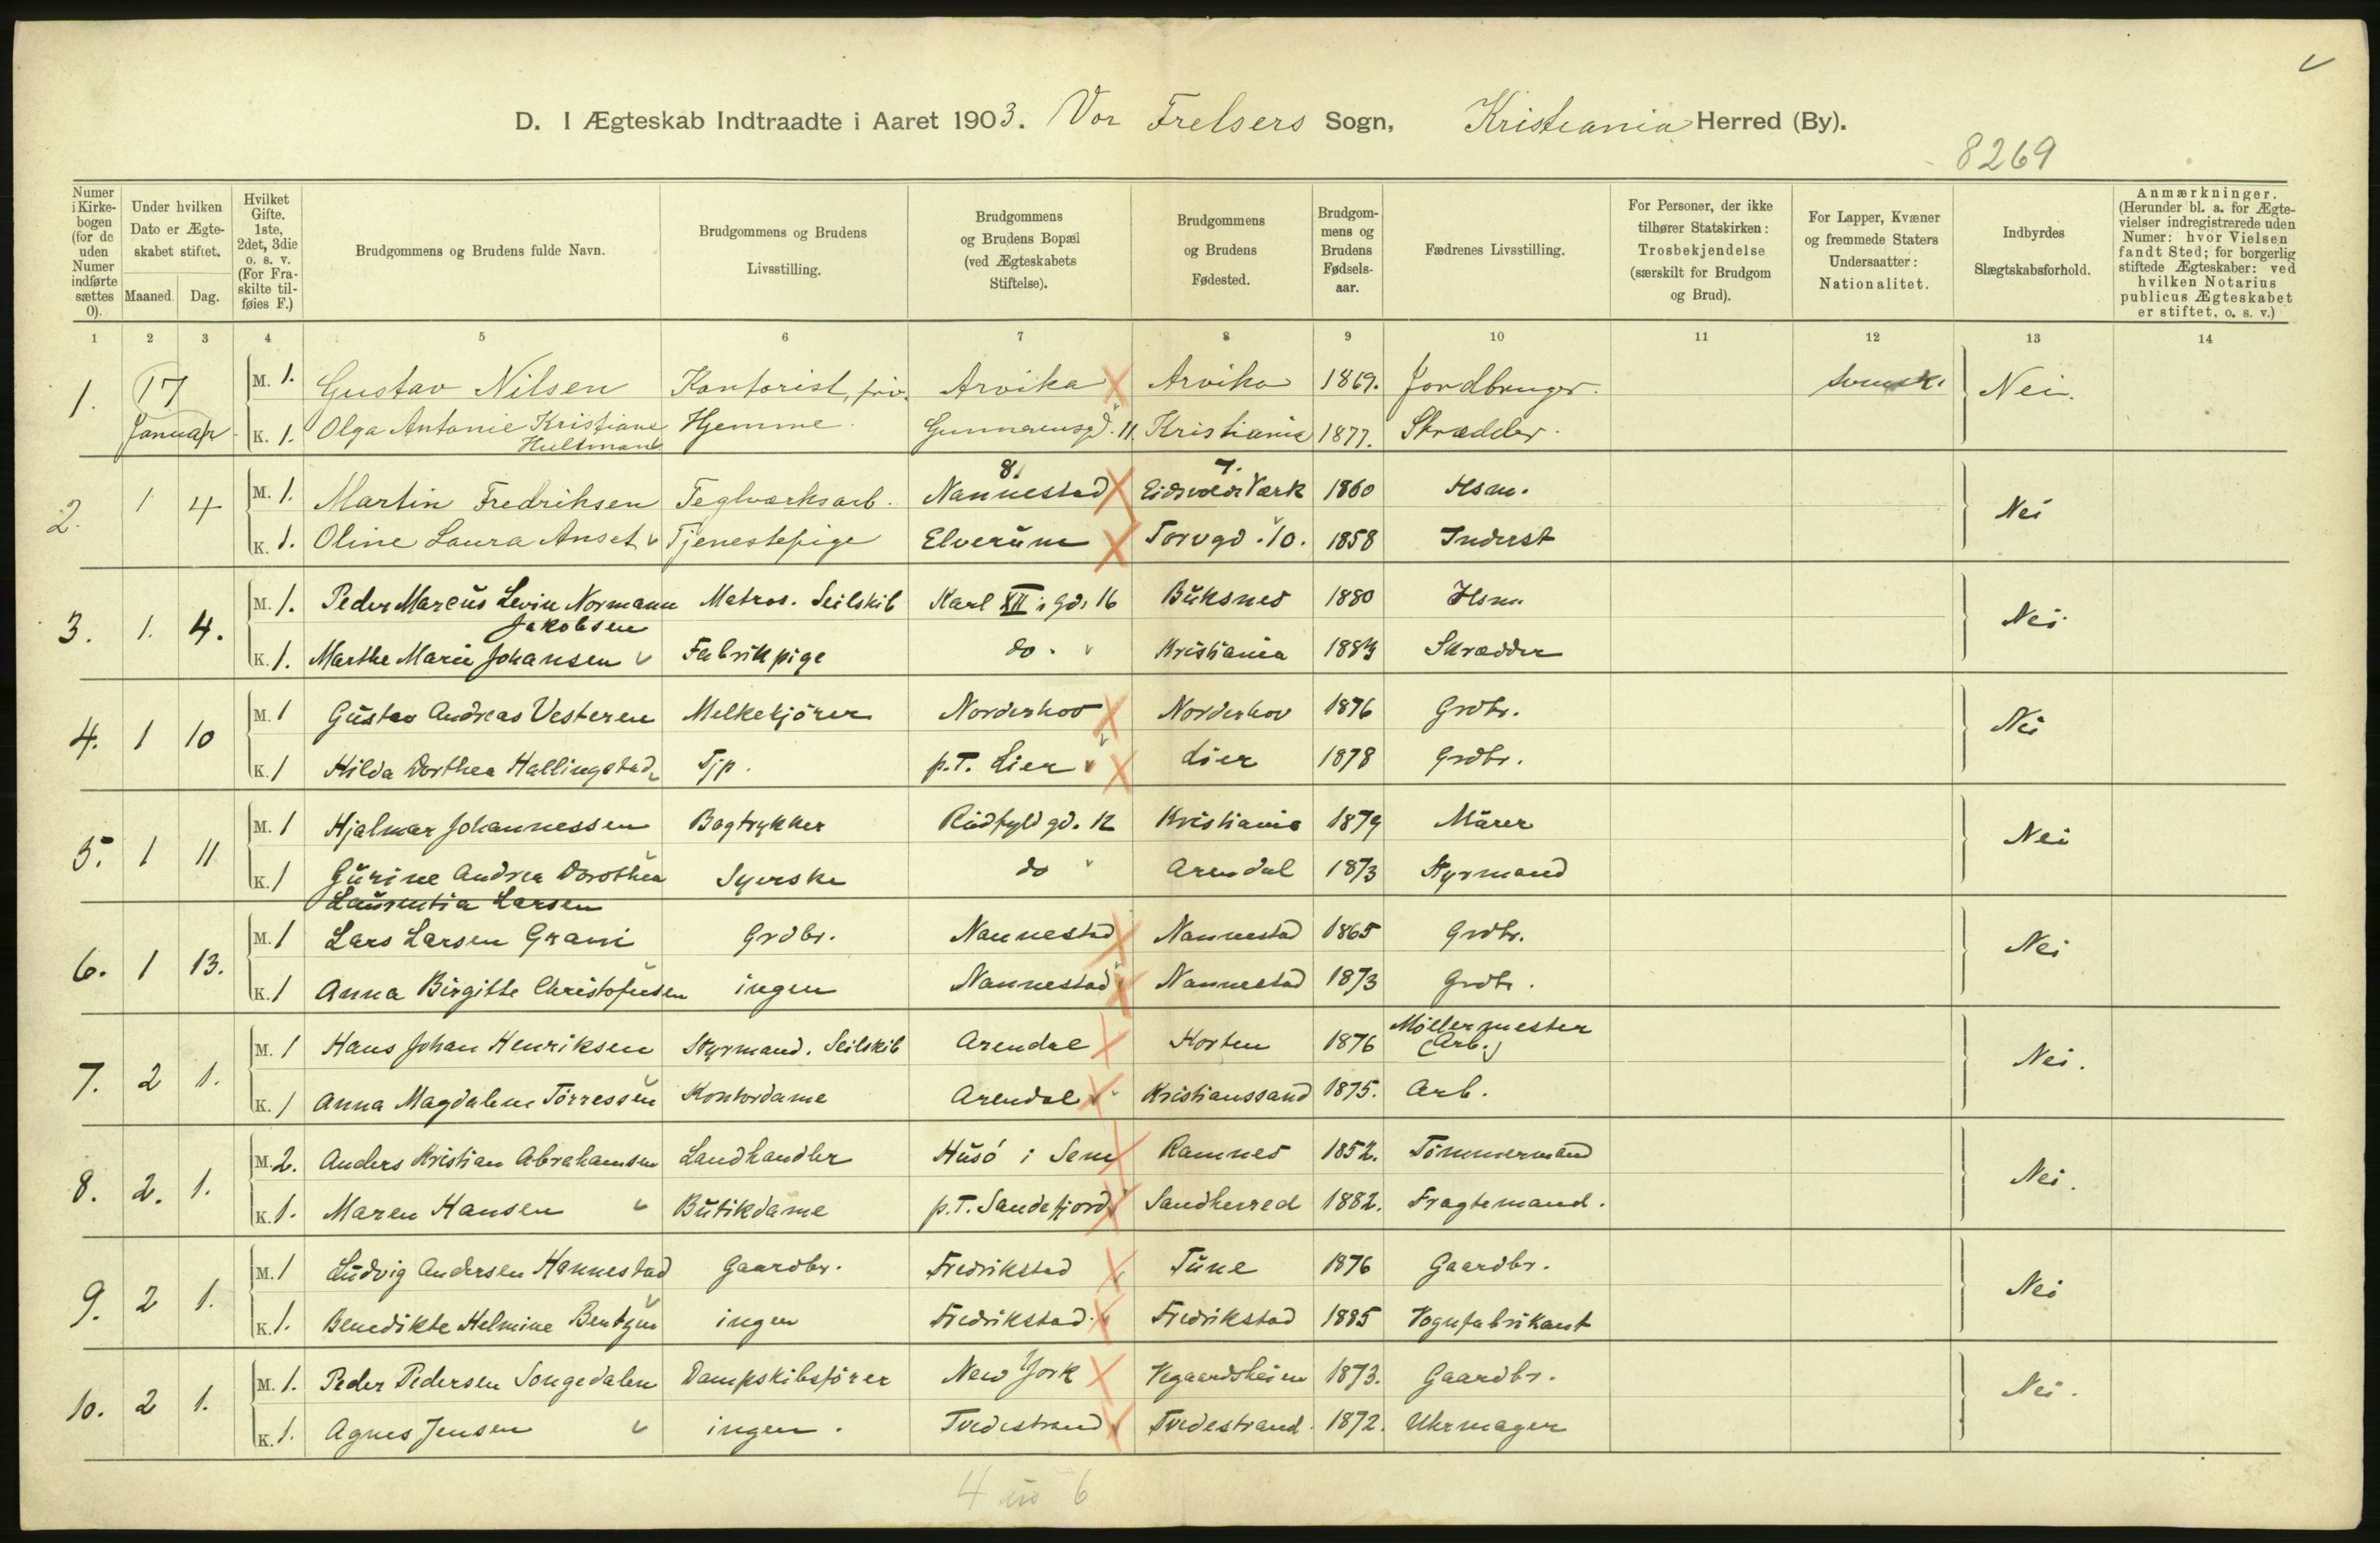 D. I Ægteskab Indtraadte i Aaret 1903. Vor Frelsers Sogn, Kristiania Herred (By).
8269
Numer i Kirkebogen (for de uden Numer indførte sættes 0).
Under hvilken Dato er Ægteskabet stiftet.
Maaned. Dag.
Hvilket Gifte. 1ste, 2det, 3die o. s. v. (For Fraskilte tilføies F.)
Brudgommens og Brudens fulde Navn.
Brudgommens og Brudens Livsstilling.
Brudgommens og Brudens Bopæl (ved Ægteskabets Stiftelse).
Brudgommens og Brudens Fødested.
Brudgommens og Brudens Fødselsaar.
Fædrenes Livsstilling.
For Personer, der ikke tilhører Statskirken: Trosbekjendelse (særskilt for Brudgom og Brud).
For Lapper, Kvæner og fremmede Staters Undersaatter: Nationalitet.
Indbyrdes Slægtskabsforhold.
Anmærkninger. (Herunder bl. a. for Ægtevielser indregistrerede uden Numer: hvor Vielsen fandt Sted; for borgerlig stiftede Ægteskaber: ved hvilken Notarius publicus Ægteskabet er stiftet, o. s. v.)
1 2 3 4 5 6 7 8 9 10 11 12 13 14
1. 17 M. 1. Gustav Nilsen Kontorist, priv. Arvika Arvika 1869. Jordbruger. svensk. Nei.
Januar K. 1. Olga Antonie Kristiane Hultmann Hjemme. Gunnerusgd. 11 Kristiania 1877. Skrædder.
8. 7.
2. 1 4 M. 1. Martin Fredriksen Teglværksarb. Nannestad Eidsvolds Værk 1860 Hsm. Nei
K. 1. Oline Laura Anset Tjenestepige Elverum Torvgd. 10. 1858 Inderst
3. 1. 4. M. 1. Peder Marcus Levin Normann Jakobsen Matros. Seilskib Karl XII's gd. 16 Buksnes 1880 Hsm. Nei
K. 1. Marthe Marie Johansen Fabrikpige do. Kristiania 1883 Skrædder
4. 1 10 M. 1 Gustav Andreas Vesteren Melkekjörer Norderhov Norderhov 1876 Grdbr. Nei
K. 1 Hilda Dorthea Hallingstad Tjp. p.T. Lier Lier 1878 Grdbr.
5. 1 11 M. 1 Hjalmar Johannessen Bogtrykker Rudfyldgd. 12 Kristiania 1879 Murer Nei
K. 1 Gurine Andrea Dorothea Laurentia Larsen Syerske do Arendal 1873 Styrmand
6. 1 13. M. 1 Lars Larsen Grani Grdbr. Nannestad Nannestad 1865 Grdbr. Nei
K. 1 Anna Birgitte Christofersen ingen Nannestad Nannestad 1873 Grdbr.
7. 2 1. M. 1 Hans Johan Henriksen Styrmand. Seilskib Arendal Horten 1876 Möllermester (Arb.) Nei.
K. 1 Anna Magdalene Törressen Kontordame Arendal Kristianssand 1875. Arb.
8. 2. 1. M. 2. Anders Kristian Abrahamsen Landhandler Husö i Sem Ramnes 1852. Tömmermand Nei.
K. 1. Maren Hansen Butikdame p.T. Sandefjord Sandherred 1882. Fragtemand.
9. 2 1. M. 1 Ludvig Andersen Hannestad Gaardbr. Fredrikstad Tune 1876 Gaardbr. Nei
K. 1. Benedikte Helmine Bentzen ingen Fredrikstad. Fredrikstad 1885 Vognfabrikant
10. 2 1. M. 1. Peder Pedersen Songedalen Dampskibsförer New York Vegaardsheien 1873. Gaardbr. Nei.
K. 1. Agnes Jensen ingen. Tvedestrand Tvedestrand. 1872. Uhrmager